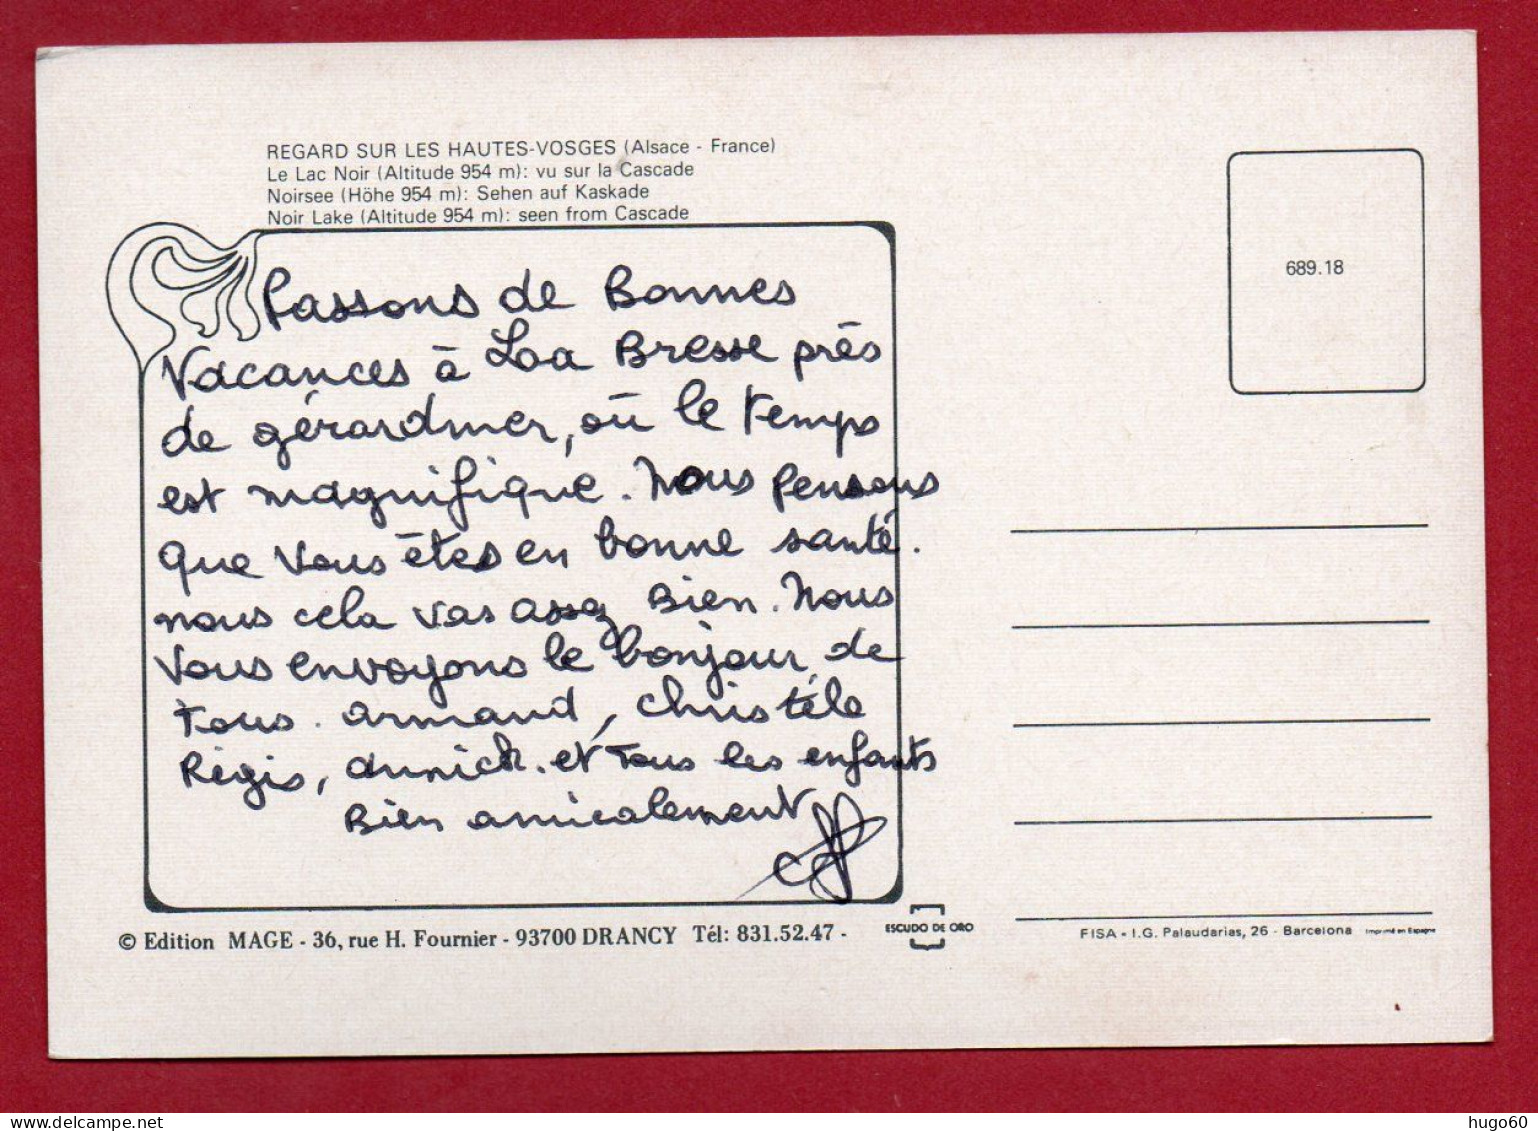 REGARD SUR LES HAUTES-VOSGES (Alsace - France)
Le Lac Noir (Altitude 954 m): vu sur la Cascade
Noirsee (Höhe 954 m): Sehen auf Kaskade
Noir Lake (Altitude 954 m): seen from Cascade
Passons de Bonnes
Vacances à Loa Bresse près
de gérardmer, où le temps
est magnifique. Nous pensons
que vous êtes en bonne santé.
nous cela vas assez Bien. Nous
vous envoyons le bonjour de
Tous. armand, christèle
Régis, annick. et Tous les enfants
Bien amicalement
689.18
© Edition MAGE - 36, rue H. Fournier - 93700 DRANCY Tél: 831.52.47 -
ESCUDO DE ORO
FISA - I.G. Palaudarias, 26 - Barcelona Imprimé en Espagne
hugo60